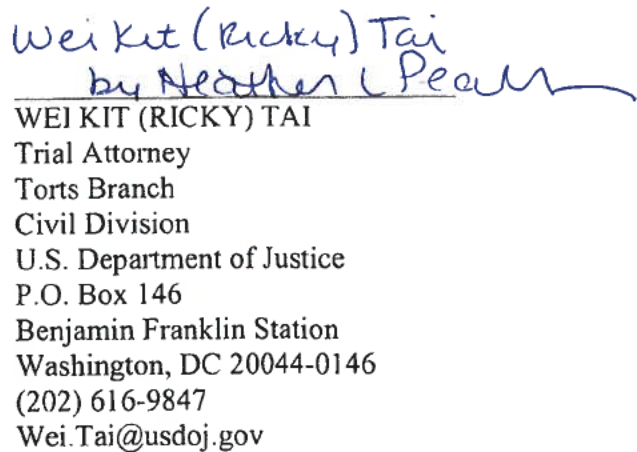 Wei Kit (Ricky) Tai
by Heather L Pearlman
WEI KIT (RICKY) TAI
Trial Attorney
Torts Branch
Civil Division
U.S. Department of Justice
P.O. Box 146
Benjamin Franklin Station
Washington, DC 20044-0146
(202) 616-9847
Wei.Tai@usdoj.gov